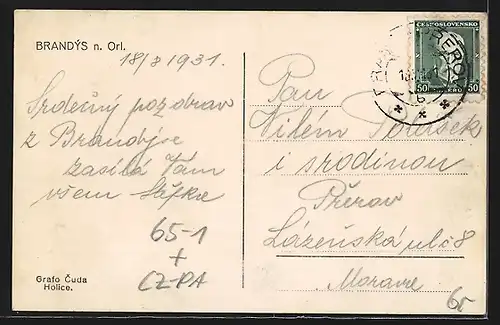 BRANDÝS n. Orl.
18/8 1931.
Srdečný pozdrav
z Brandýse
zasílá Vám
všem
65-1
+
CZ-PA
Grafo Čuda
Holice.
ČESKOSLOVENSKO
50 50
Pan
Vilém
i s rodinou
Přerov
Lázeňská ul č 8
Morava